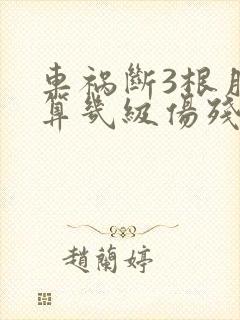 車祸斷3根
算幾級傷殘
趙蘭婷